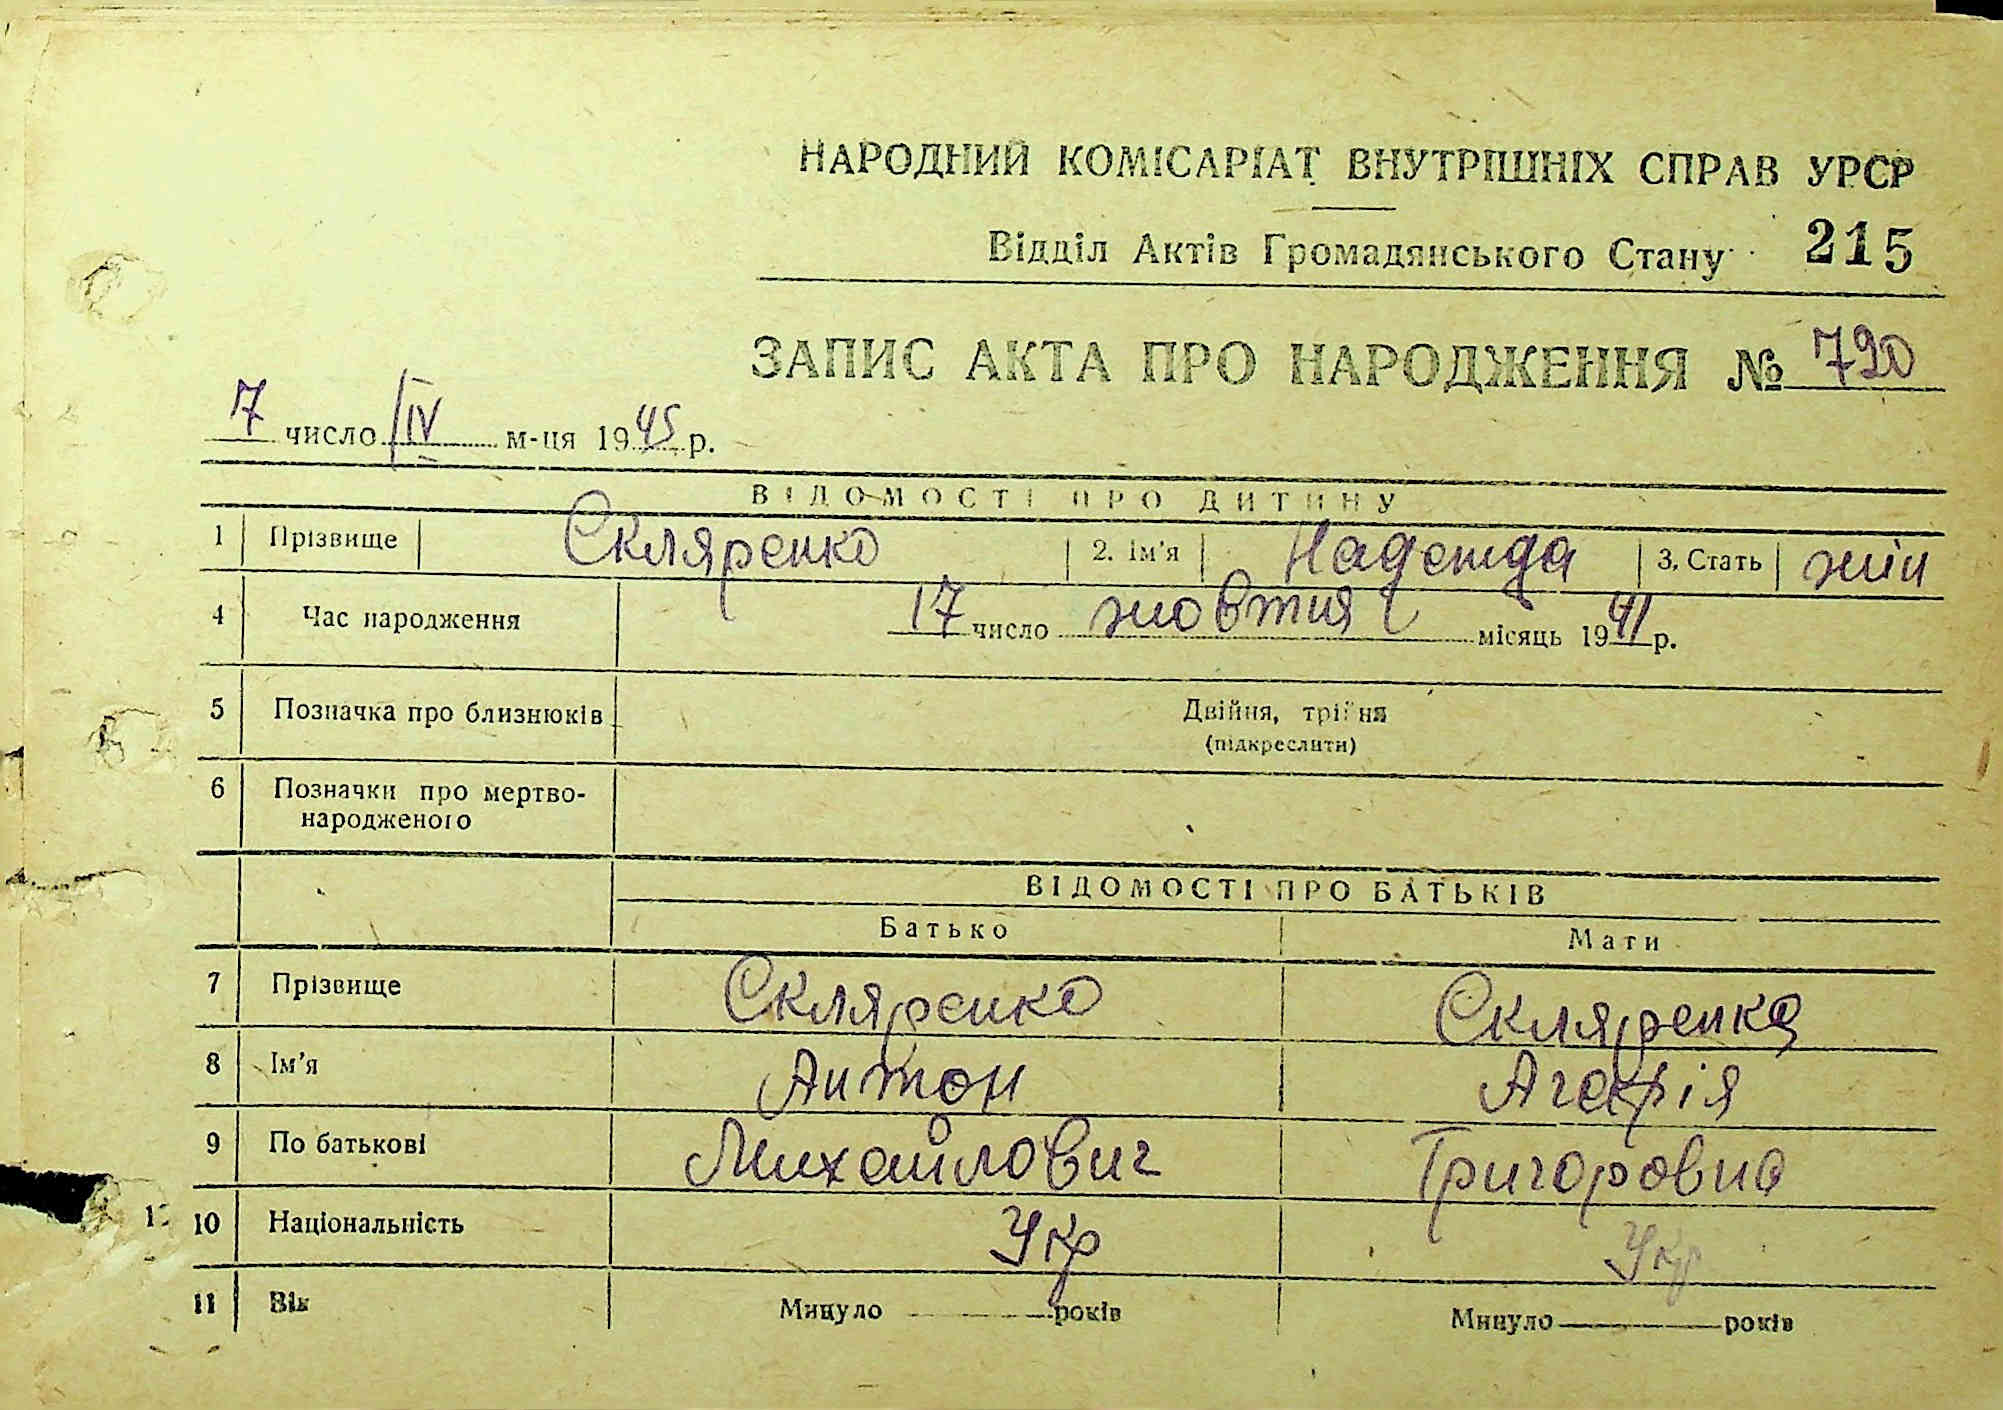 НАРОДНИЙ КОМІСАРІАТ ВНУТРІШНІХ СПРАВ УРСР
Відділ Актів Громадянського Стану 215
ЗАПИС АКТА ПРО НАРОДЖЕННЯ № 720
7 число IV м-ця 1945 р.
ВІДОМОСТІ ПРО ДИТИНУ
1 Прізвище Скляренко 2. Ім'я Надежда 3. Стать жін
4 Час народження 17 число жовтня місяць 1941 р.
5 Позначка про близнюків Двійня, трійня
(підкреслити)
6 Позначки про мертво-
народженого
ВІДОМОСТІ ПРО БАТЬКІВ
Батько Мати
7 Прізвище Скляренко Скляренко
8 Ім'я Антон Агафія
9 По батькові Михайлович Григоровна
10 Національність Укр Укр
11 Вік Минуло років Минуло років